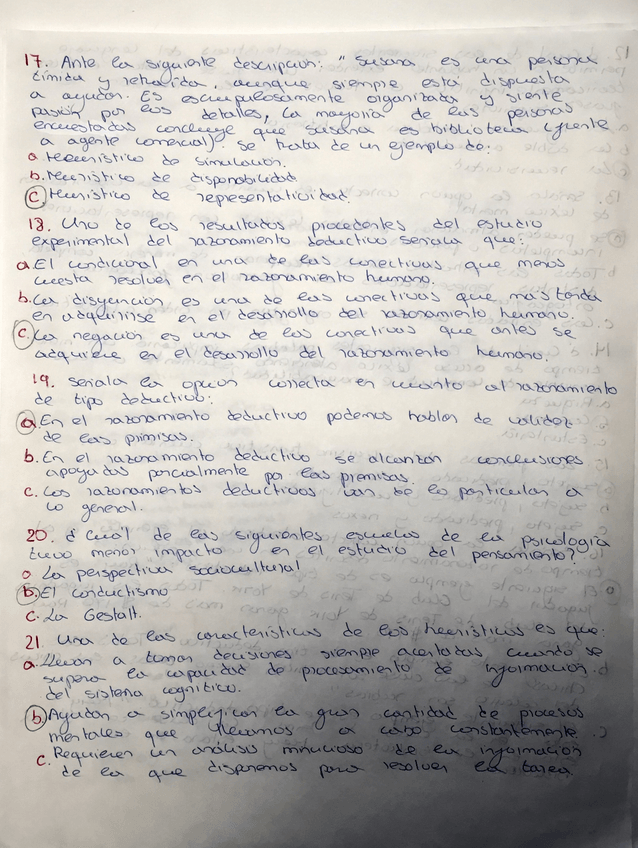 17. Ante la siguiente descripción: "Susana es una persona
tímida y retraída, aunque siempre está dispuesta
a ayudar. Es escrupulosamente organizada y siente
pasión por los detalles, La mayoría de las personas
encuestadas concluye que Susana es biblioteca (frente
a agente comercial). Se trata de un ejemplo de:
a Heurístico de simulación.
b. Heurístico de disponibilidad.
c Heurístico de representatividad.
18. Uno de los resultados procedentes del estudio
experimental del razonamiento deductivo señala que:
a El condicional en una de las conectivas que menos
cuesta resolver en el razonamiento humano.
b. La disyunción es una de las conectivas que más tarda
en adquirirse en el desarrollo del razonamiento humano.
c. La negación es una de las conectivas que antes se
adquiere en el desarrollo del razonamiento humano.
19. Señala la opción correcta en cuanto al razonamiento
de tipo deductivo:
a En el razonamiento deductivo podemos hablar de validez
de las primisas.
b. En el razonamiento deductivo se alcanzan conclusiones
apoyadas parcialmente por las premisas.
c. Los razonamientos deductivos van de lo particular a
lo general.
20. ¿Cuál de las siguientes escuelas de la psicología
tuvo menor impacto en el estudio del pensamiento?
a La perspectiva sociocultural
b. El conductismo
c. La Gestalt.
21. Una de las características de los heurísticos es que:
a. Llevan a tomar decisiones siempre acertadas cuando se
supera la capacidad de procesamiento de información
del sistema cognitivo.
b Ayudan a simplificar la gran cantidad de procesos
mentales que llevamos a cabo constantemente.
c. Requieren un análisis minucioso de la información
de la que disponemos para resolver la tarea.